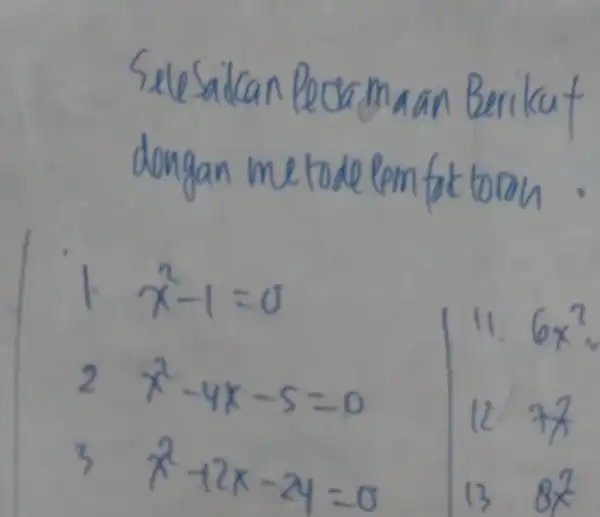 Selesaikan Persamaan Berikut
dengan metode pemfaktoran.
1 x² - 1 = 0
2 x² - 4x - 5 = 0
3 x² + 2x - 24 = 0
11. 6x²
12 7x²
13 8x²